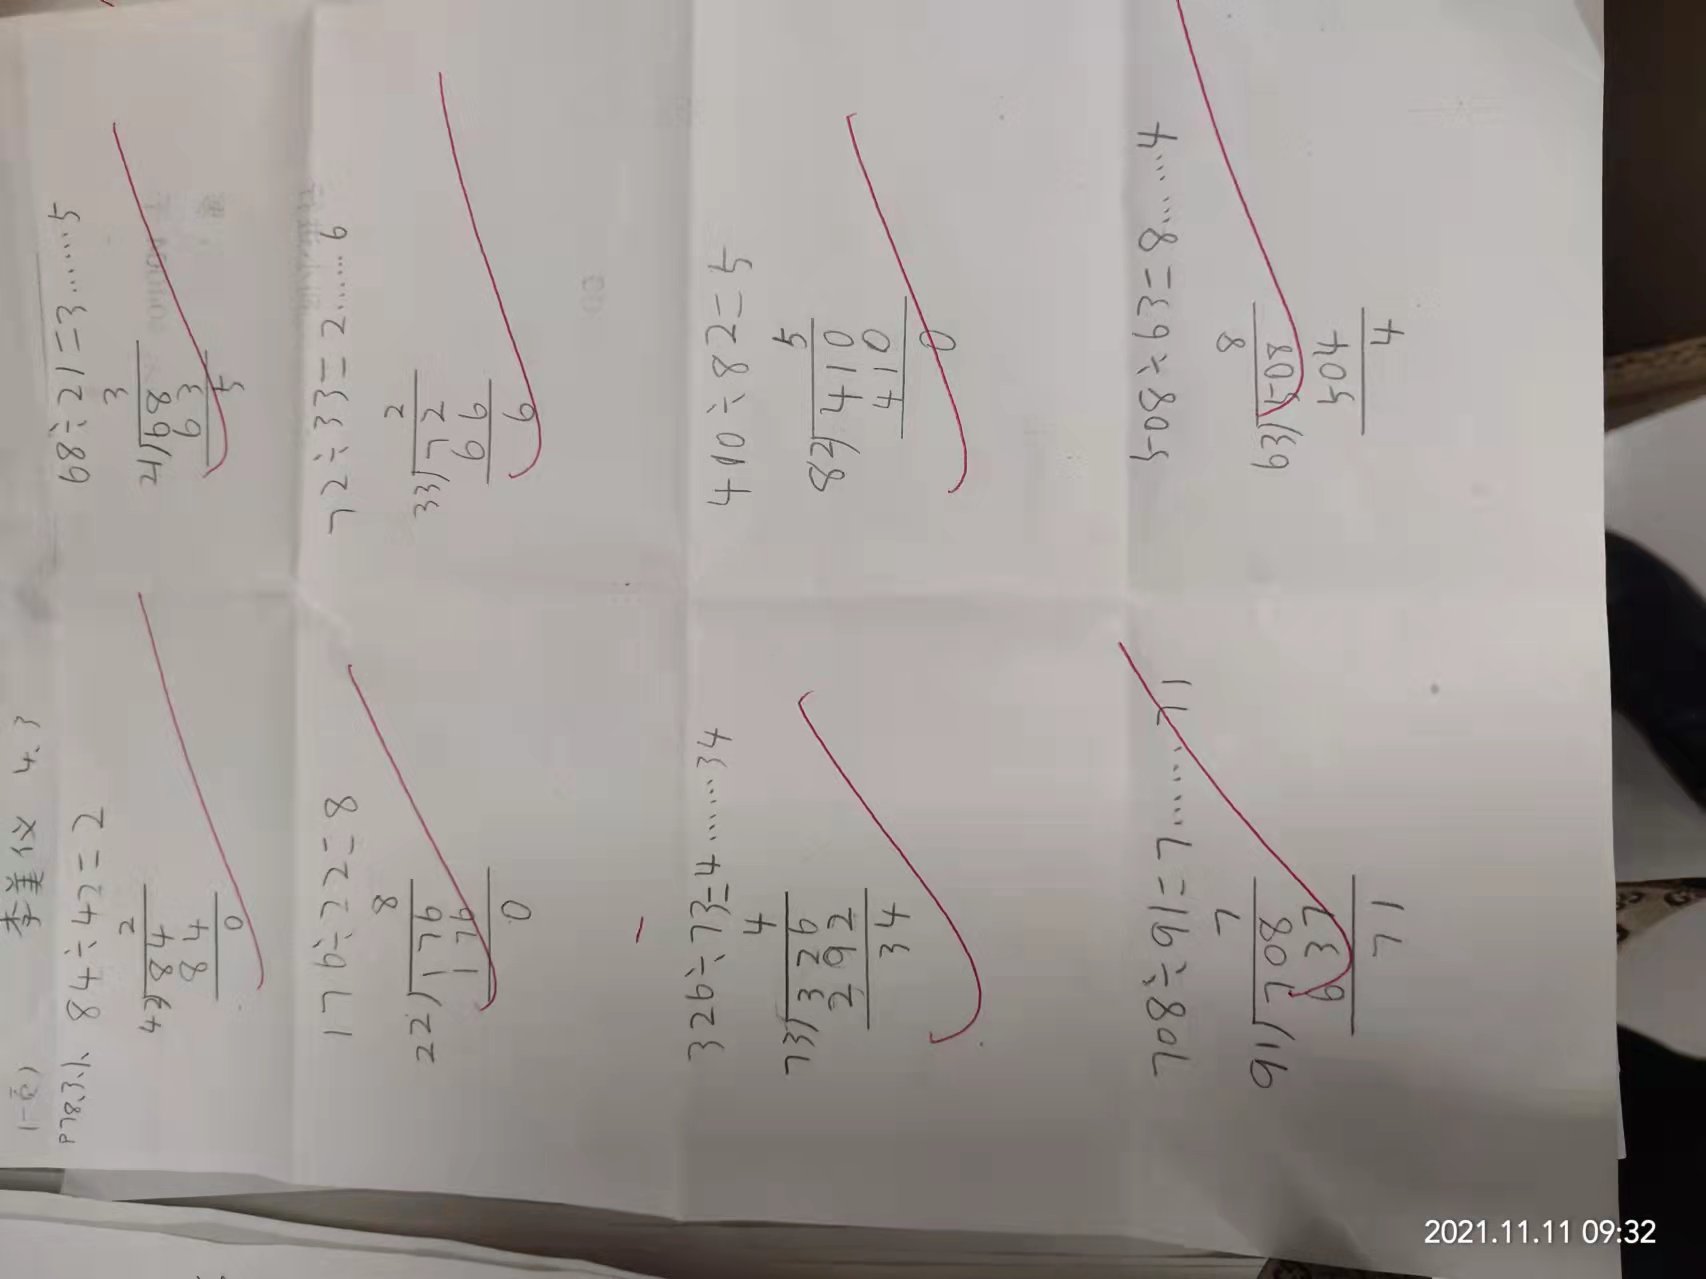 李美仪 4.3
P78.3.1、 84÷42=2
2
42)84
84
0
68÷21=3……5
3
21)68
63
5
176÷22=8
8
22)176
176
0
72÷33=2……6
2
33)72
66
6
326÷73=4……34
4
73)326
292
34
410÷82=5
5
82)410
410
0
708÷91=7……71
7
91)708
637
71
508÷63=8……4
8
63)508
504
4
2021.11.11 09:32